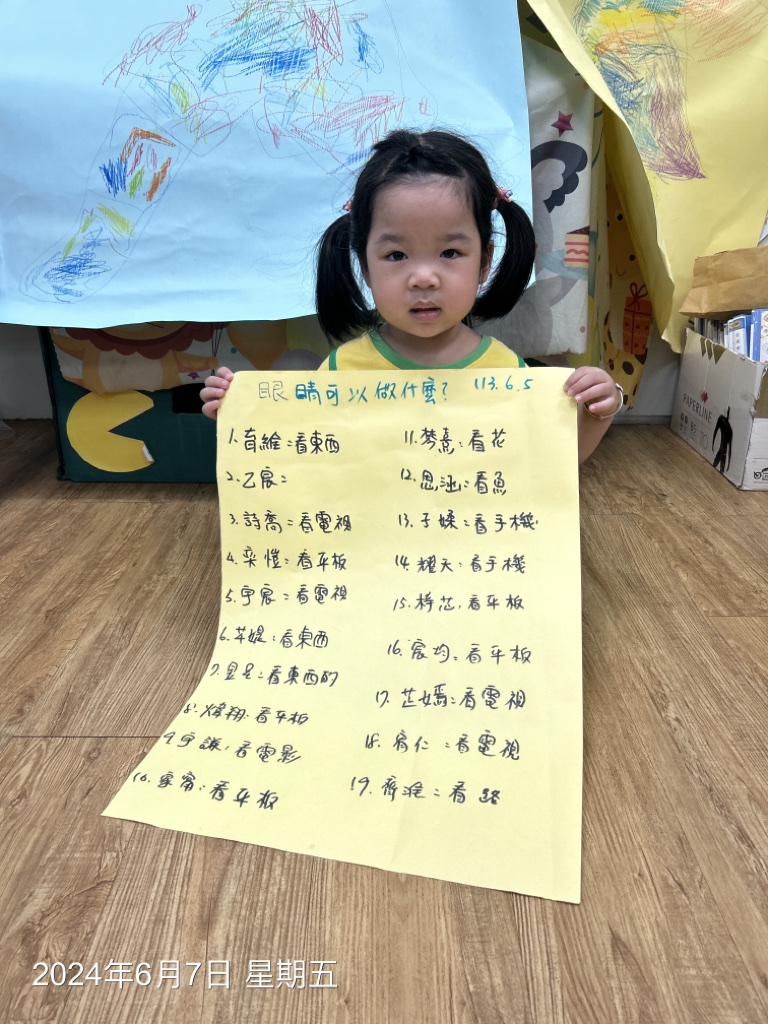 眼睛可以做什麼? 113.6.5
1. 育維:看東西
2. 乙宸:
3. 詩喬:看電視
4. 奕愷:看平板
5. 宇宸:看電視
6. 苹媞:看東西
7. 看東西的
8. 煒翔:看平板
9. 宇謙:看電影
10. 家甯:看平板
11. 梦熹:看花
12. 思涵:看魚
13. 子媃:看手機
14. 耀天:看手機
15. 看平板
16. 宸均:看平板
17. 芷嫣:看電視
18. 宥仁:看電視
19. 看路
PAPERLINE
2024年6月7日 星期五